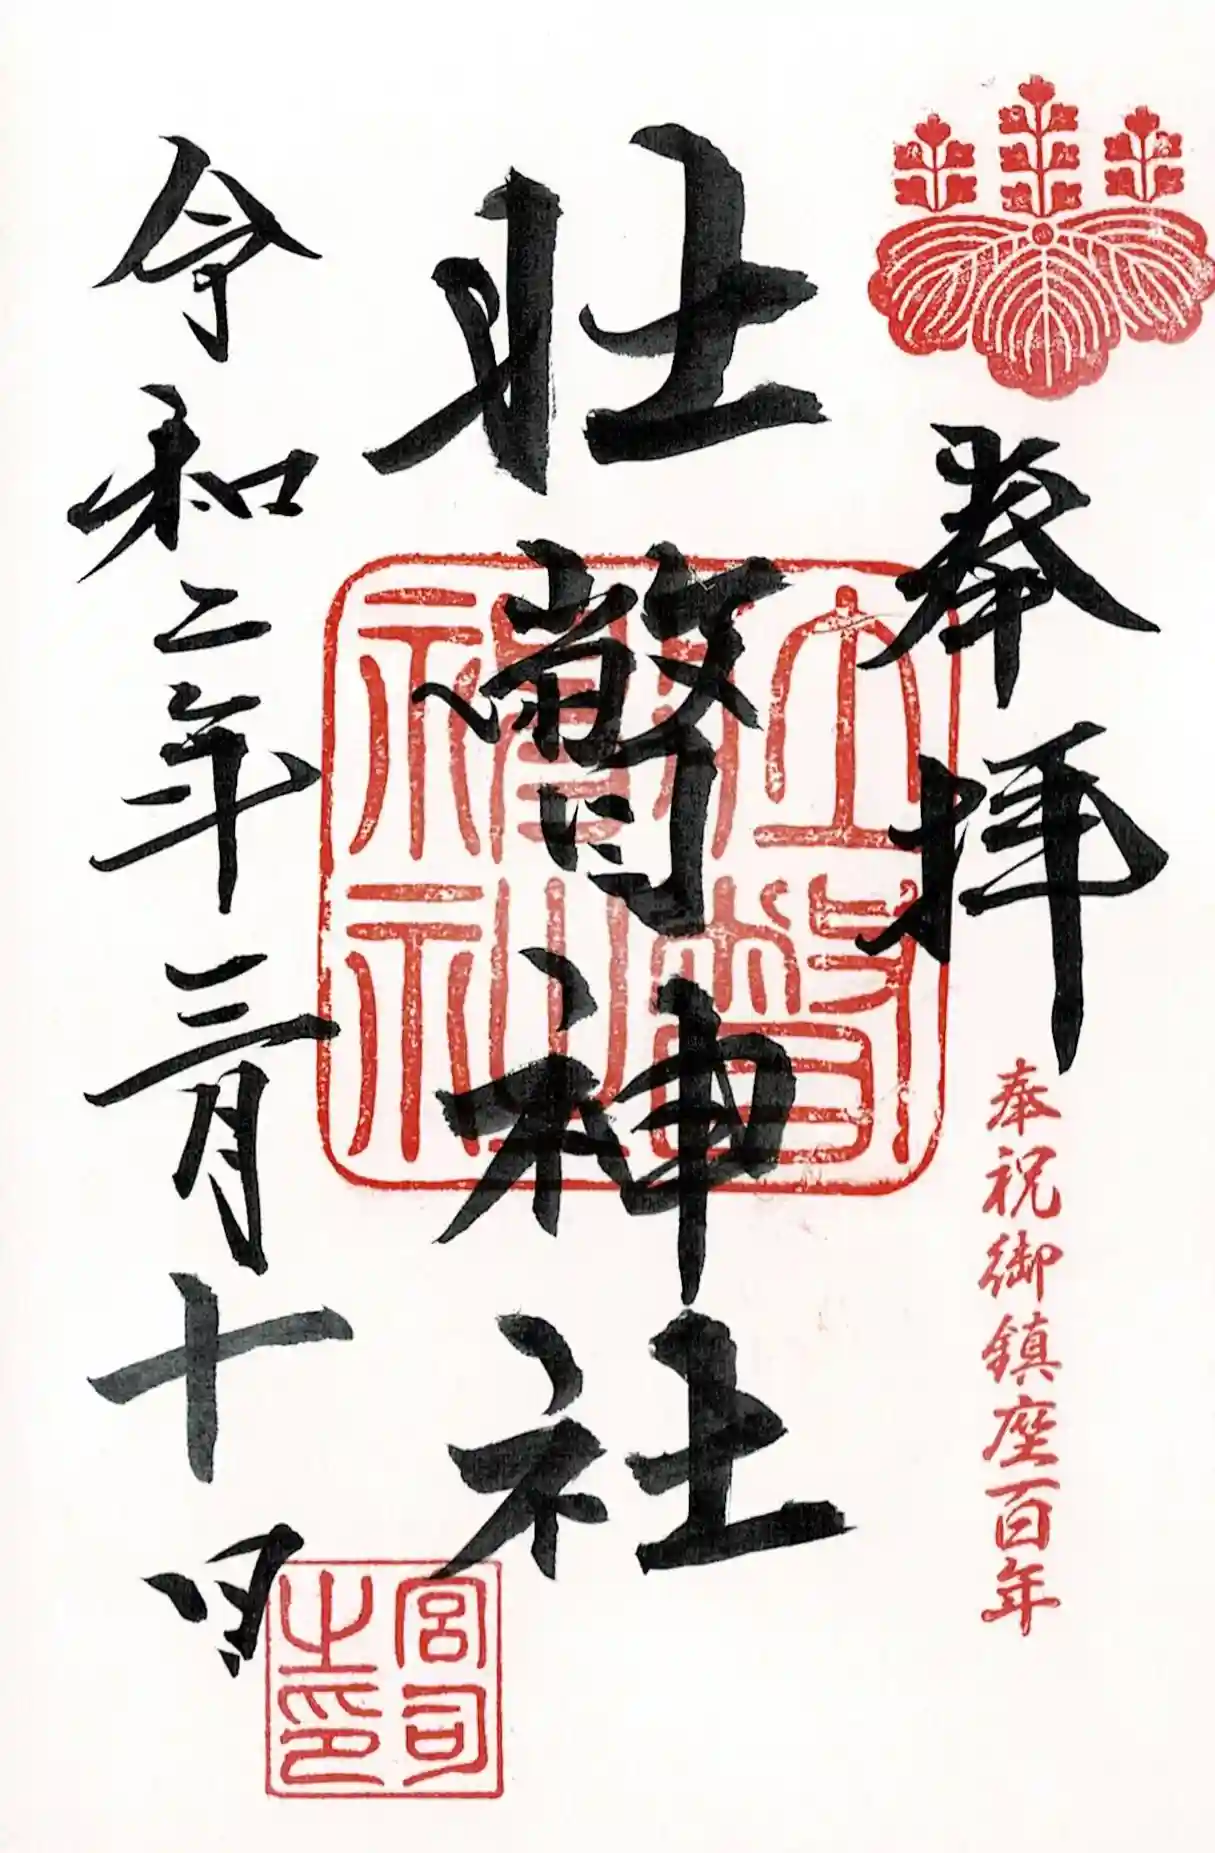 奉拝
奉祝御鎮座百年
壮瞥神社
壮瞥
神社
令和二年三月十日
宮司
之印